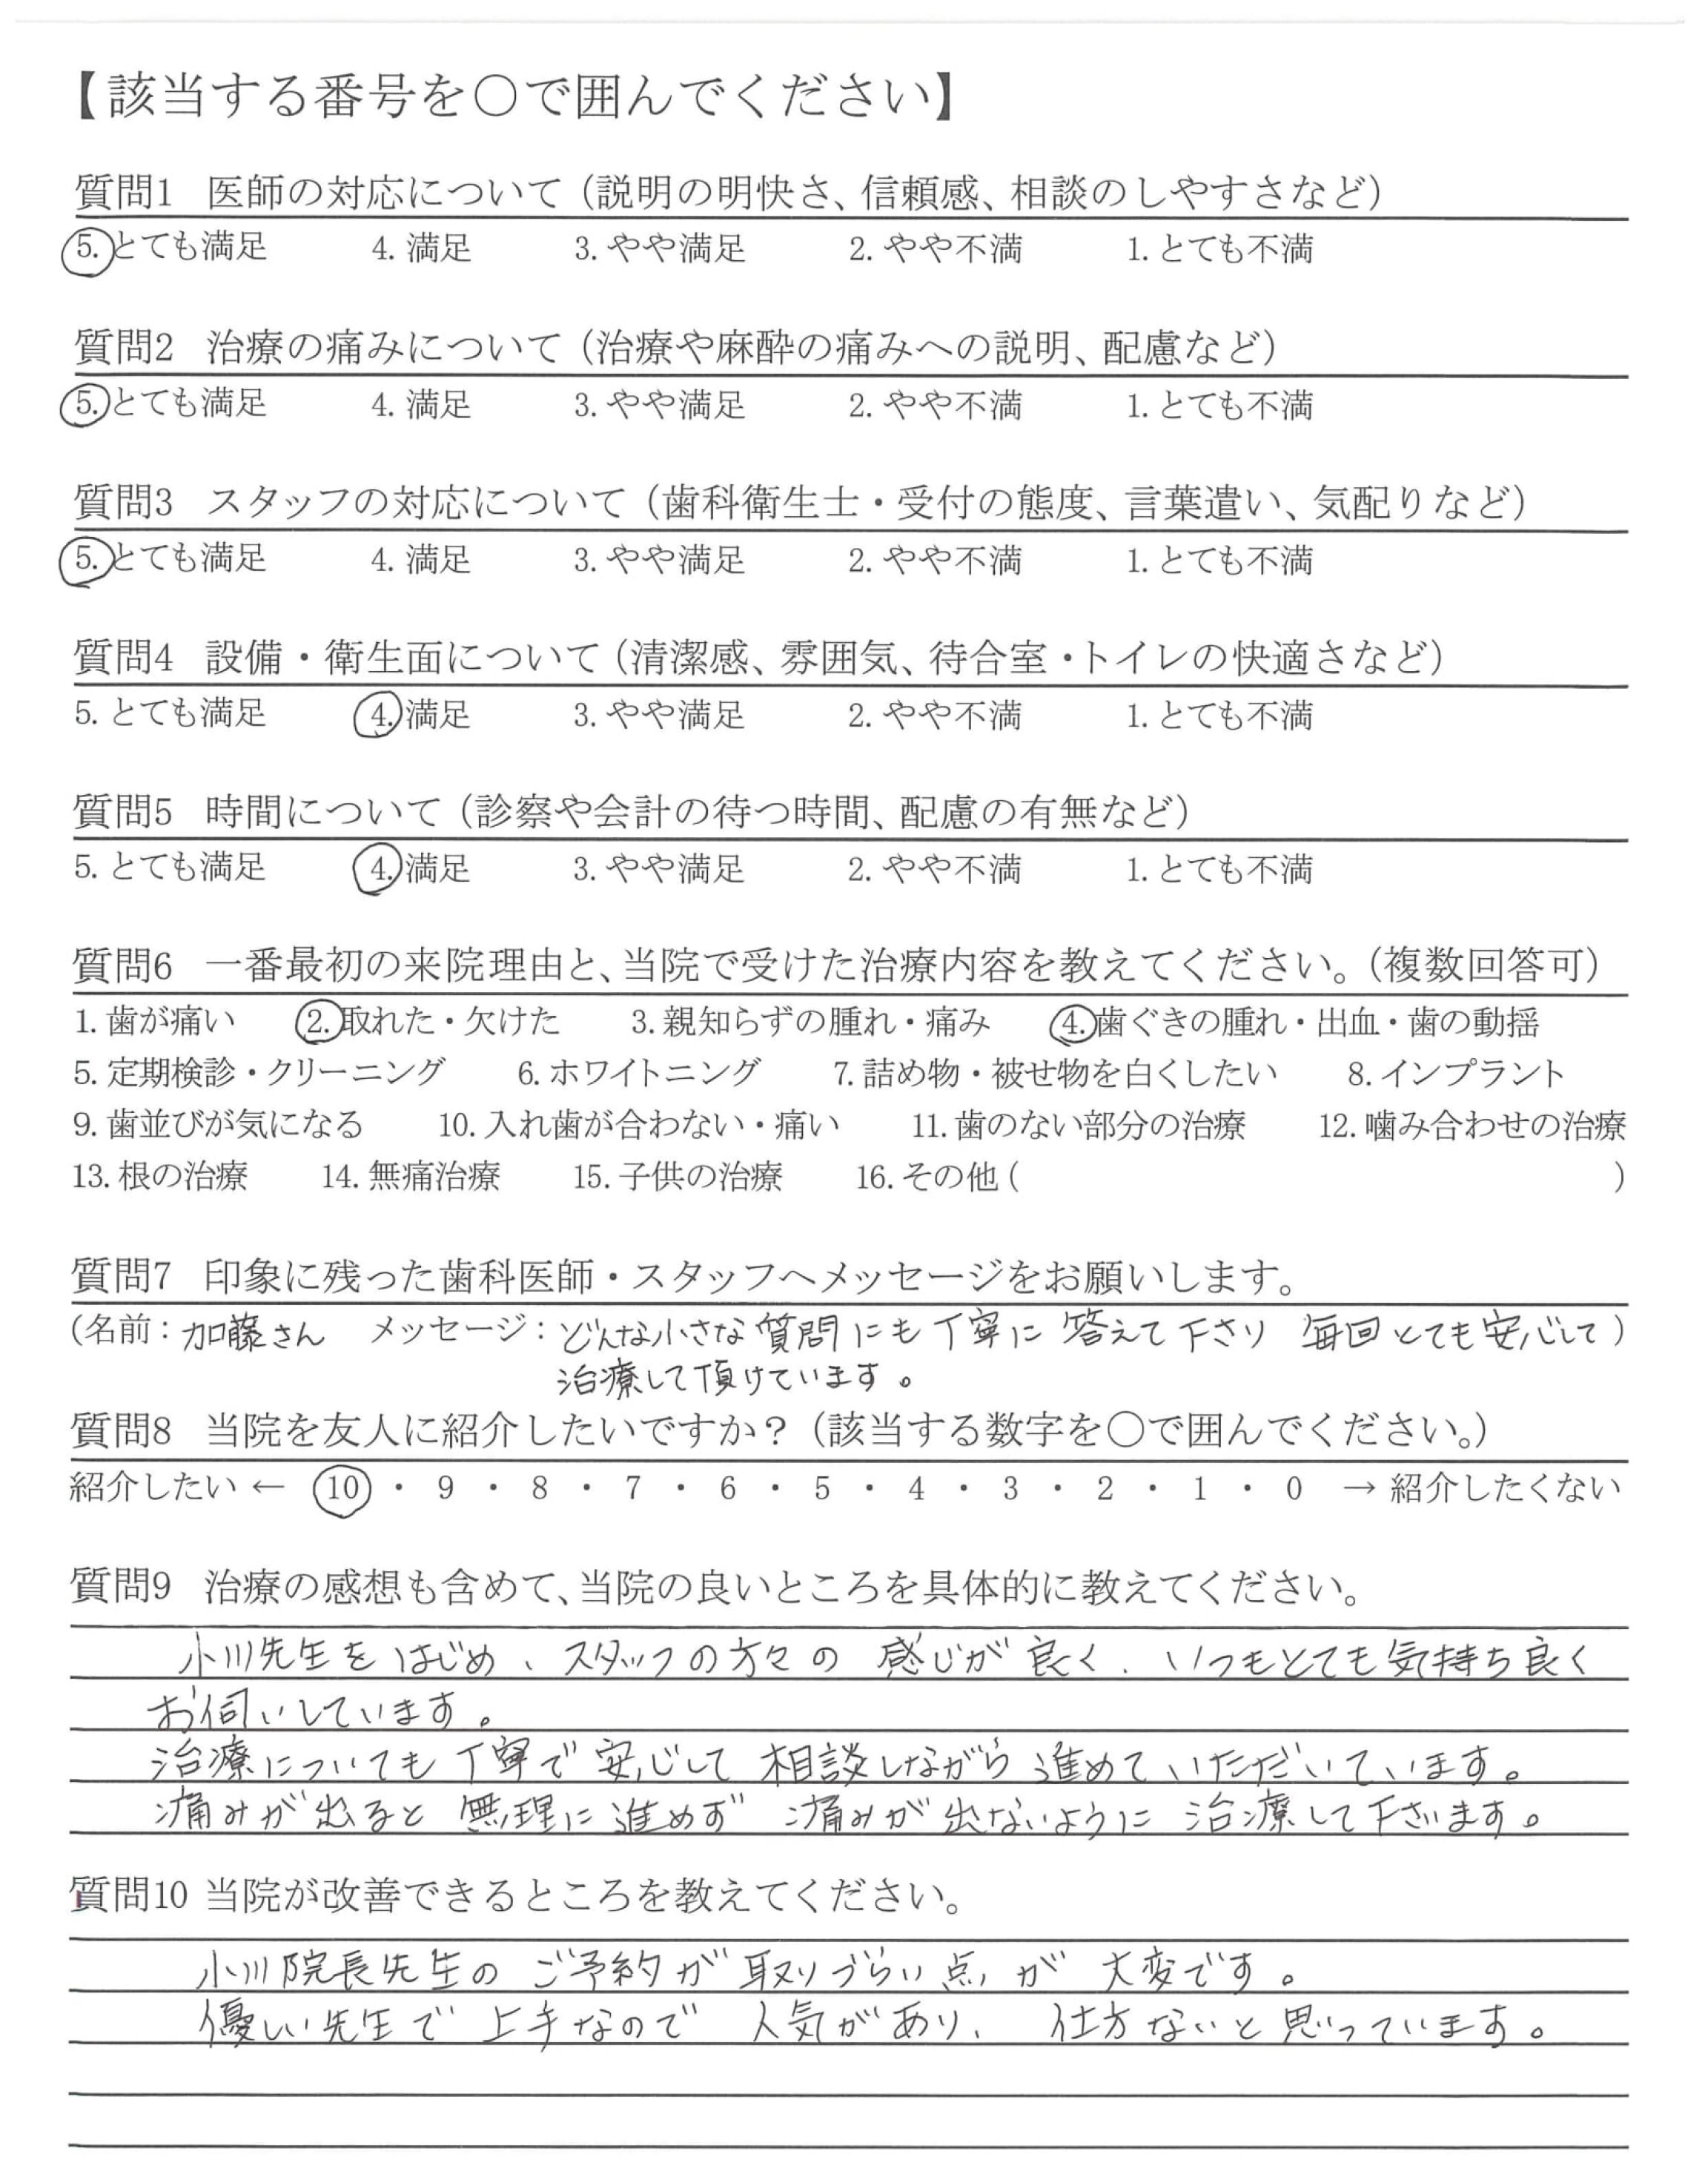 【該当する番号を〇で囲んでください】
質問1 医師の対応について（説明の明快さ、信頼感、相談のしやすさなど）
5. とても満足 4. 満足 3. やや満足 2. やや不満 1. とても不満
質問2 治療の痛みについて（治療や麻酔の痛みへの説明、配慮など）
5. とても満足 4. 満足 3. やや満足 2. やや不満 1. とても不満
質問3 スタッフの対応について（歯科衛生士・受付の態度、言葉遣い、気配りなど）
5. とても満足 4. 満足 3. やや満足 2. やや不満 1. とても不満
質問4 設備・衛生面について（清潔感、雰囲気、待合室・トイレの快適さなど）
5. とても満足 4. 満足 3. やや満足 2. やや不満 1. とても不満
質問5 時間について（診察や会計の待つ時間、配慮の有無など）
5. とても満足 4. 満足 3. やや満足 2. やや不満 1. とても不満
質問6 一番最初の来院理由と、当院で受けた治療内容を教えてください。（複数回答可）
1. 歯が痛い 2. 取れた・欠けた 3. 親知らずの腫れ・痛み 4. 歯ぐきの腫れ・出血・歯の動揺
5. 定期検診・クリーニング 6. ホワイトニング 7. 詰め物・被せ物を白くしたい 8. インプラント
9. 歯並びが気になる 10. 入れ歯が合わない・痛い 11. 歯のない部分の治療 12. 噛み合わせの治療
13. 根の治療 14. 無痛治療 15. 子供の治療 16. その他（ ）
質問7 印象に残った歯科医師・スタッフへメッセージをお願いします。
（名前：加藤さん メッセージ：どんな小さな質問にも丁寧に答えて下さり 毎回とても安心して）
治療して頂けています。
質問8 当院を友人に紹介したいですか？（該当する数字を〇で囲んでください。）
紹介したい ← 10 ・ 9 ・ 8 ・ 7 ・ 6 ・ 5 ・ 4 ・ 3 ・ 2 ・ 1 ・ 0 → 紹介したくない
質問9 治療の感想も含めて、当院の良いところを具体的に教えてください。
小川先生をはじめ、スタッフの方々の感じが良く、いつもとても気持ち良く
お伺いしています。
治療についても丁寧で安心して相談しながら進めていただいています。
痛みが出ると無理に進めず痛みが出ないように治療して下さいます。
質問10 当院が改善できるところを教えてください。
小川院長先生のご予約が取りづらい点が大変です。
優しい先生で上手なので人気があり、仕方ないと思っています。